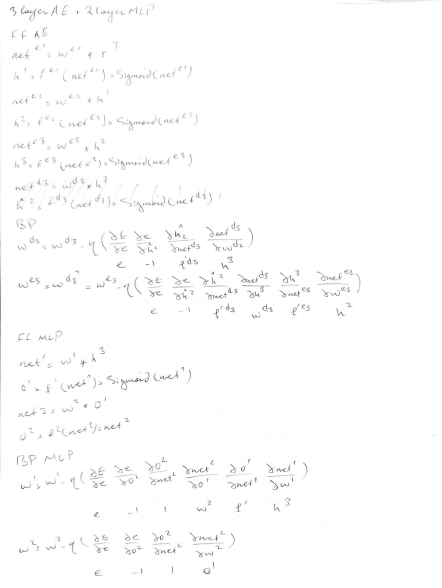 3 layer AE + 2 layer MLP
FF AE
net^e1 = w^e1 * x^T
h^1 = f^e1 (net^e1) = Sigmoid(net^e1)
net^e2 = w^e2 * h^1
h^2 = f^e2 (net^e2) = Sigmoid(net^e2)
net^e3 = w^e3 * h^2
h^3 = f^e3 (net^e3) = Sigmoid(net^e3)
net^d3 = w^d3 * h^3
ĥ^2 = f^d3 (net^d3) = Sigmoid(net^d3)
BP
w^d3 = w^d3 - η (∂E/∂e ∂e/∂ĥ^2 ∂ĥ^2/∂net^d3 ∂net^d3/∂w^d3)
e -1 f'^d3 h^3
w^e3 = w^d3^T = w^e3 - η (∂E/∂e ∂e/∂ĥ^2 ∂ĥ^2/∂net^d3 ∂net^d3/∂h^3 ∂h^3/∂net^e3 ∂net^e3/∂w^e3)
e -1 f'^d3 w^d3 f'^e3 h^2
FF MLP
net^1 = w^1 * h^3
o^1 = f^1 (net^1) = Sigmoid(net^1)
net^2 = w^2 * o^1
o^2 = f^2 (net^2) = net^2
BP MLP
w^1 = w^1 - η (∂E/∂e ∂e/∂o^2 ∂o^2/∂net^2 ∂net^2/∂o^1 ∂o^1/∂net^1 ∂net^1/∂w^1)
e -1 1 w^2 f' h^3
w^2 = w^2 - η (∂E/∂e ∂e/∂o^2 ∂o^2/∂net^2 ∂net^2/∂w^2)
e -1 1 o^1